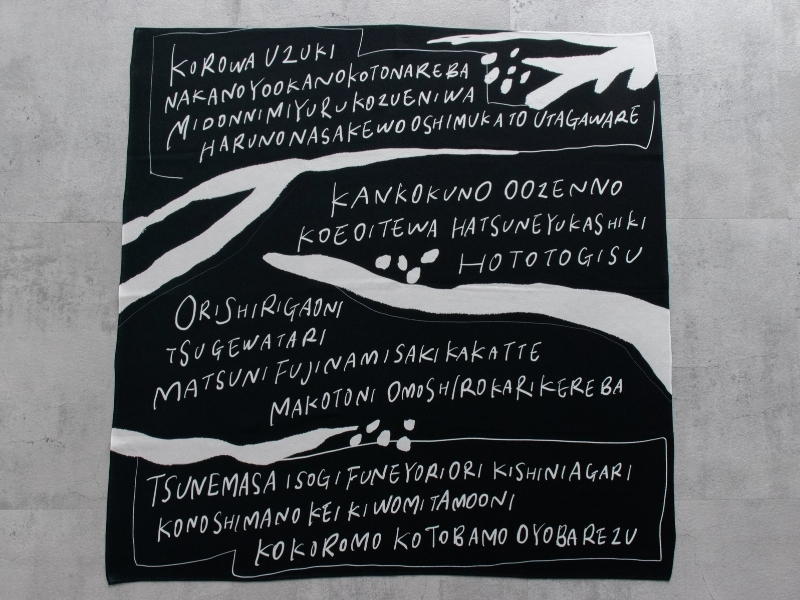 KOROWA UZUKI
NAKANOYOOKANOKOTONAREBA
MIDONNIMIYURUKOZUENIWA
HARUNONASAKEWOOSHIMUKATO UTAGAWARE
KANKOKUNO OOZENNO
KOEOITEWA HATSUNEYUKASHIKI
HOTOTOGISU
ORISHIRIGAONI
TSUGEWATARI
MATSUNI FUJINAMISAKIKAKATTE
MAKOTONI OMOSHIROKARIKEREBA
TSUNEMASA ISOGI FUNEYORIORI KISHINIAGARI
KONOSHIMANO KEIKIWOMITAMOONI
KOKOROMO KOTOBAMO OYOBAREZU